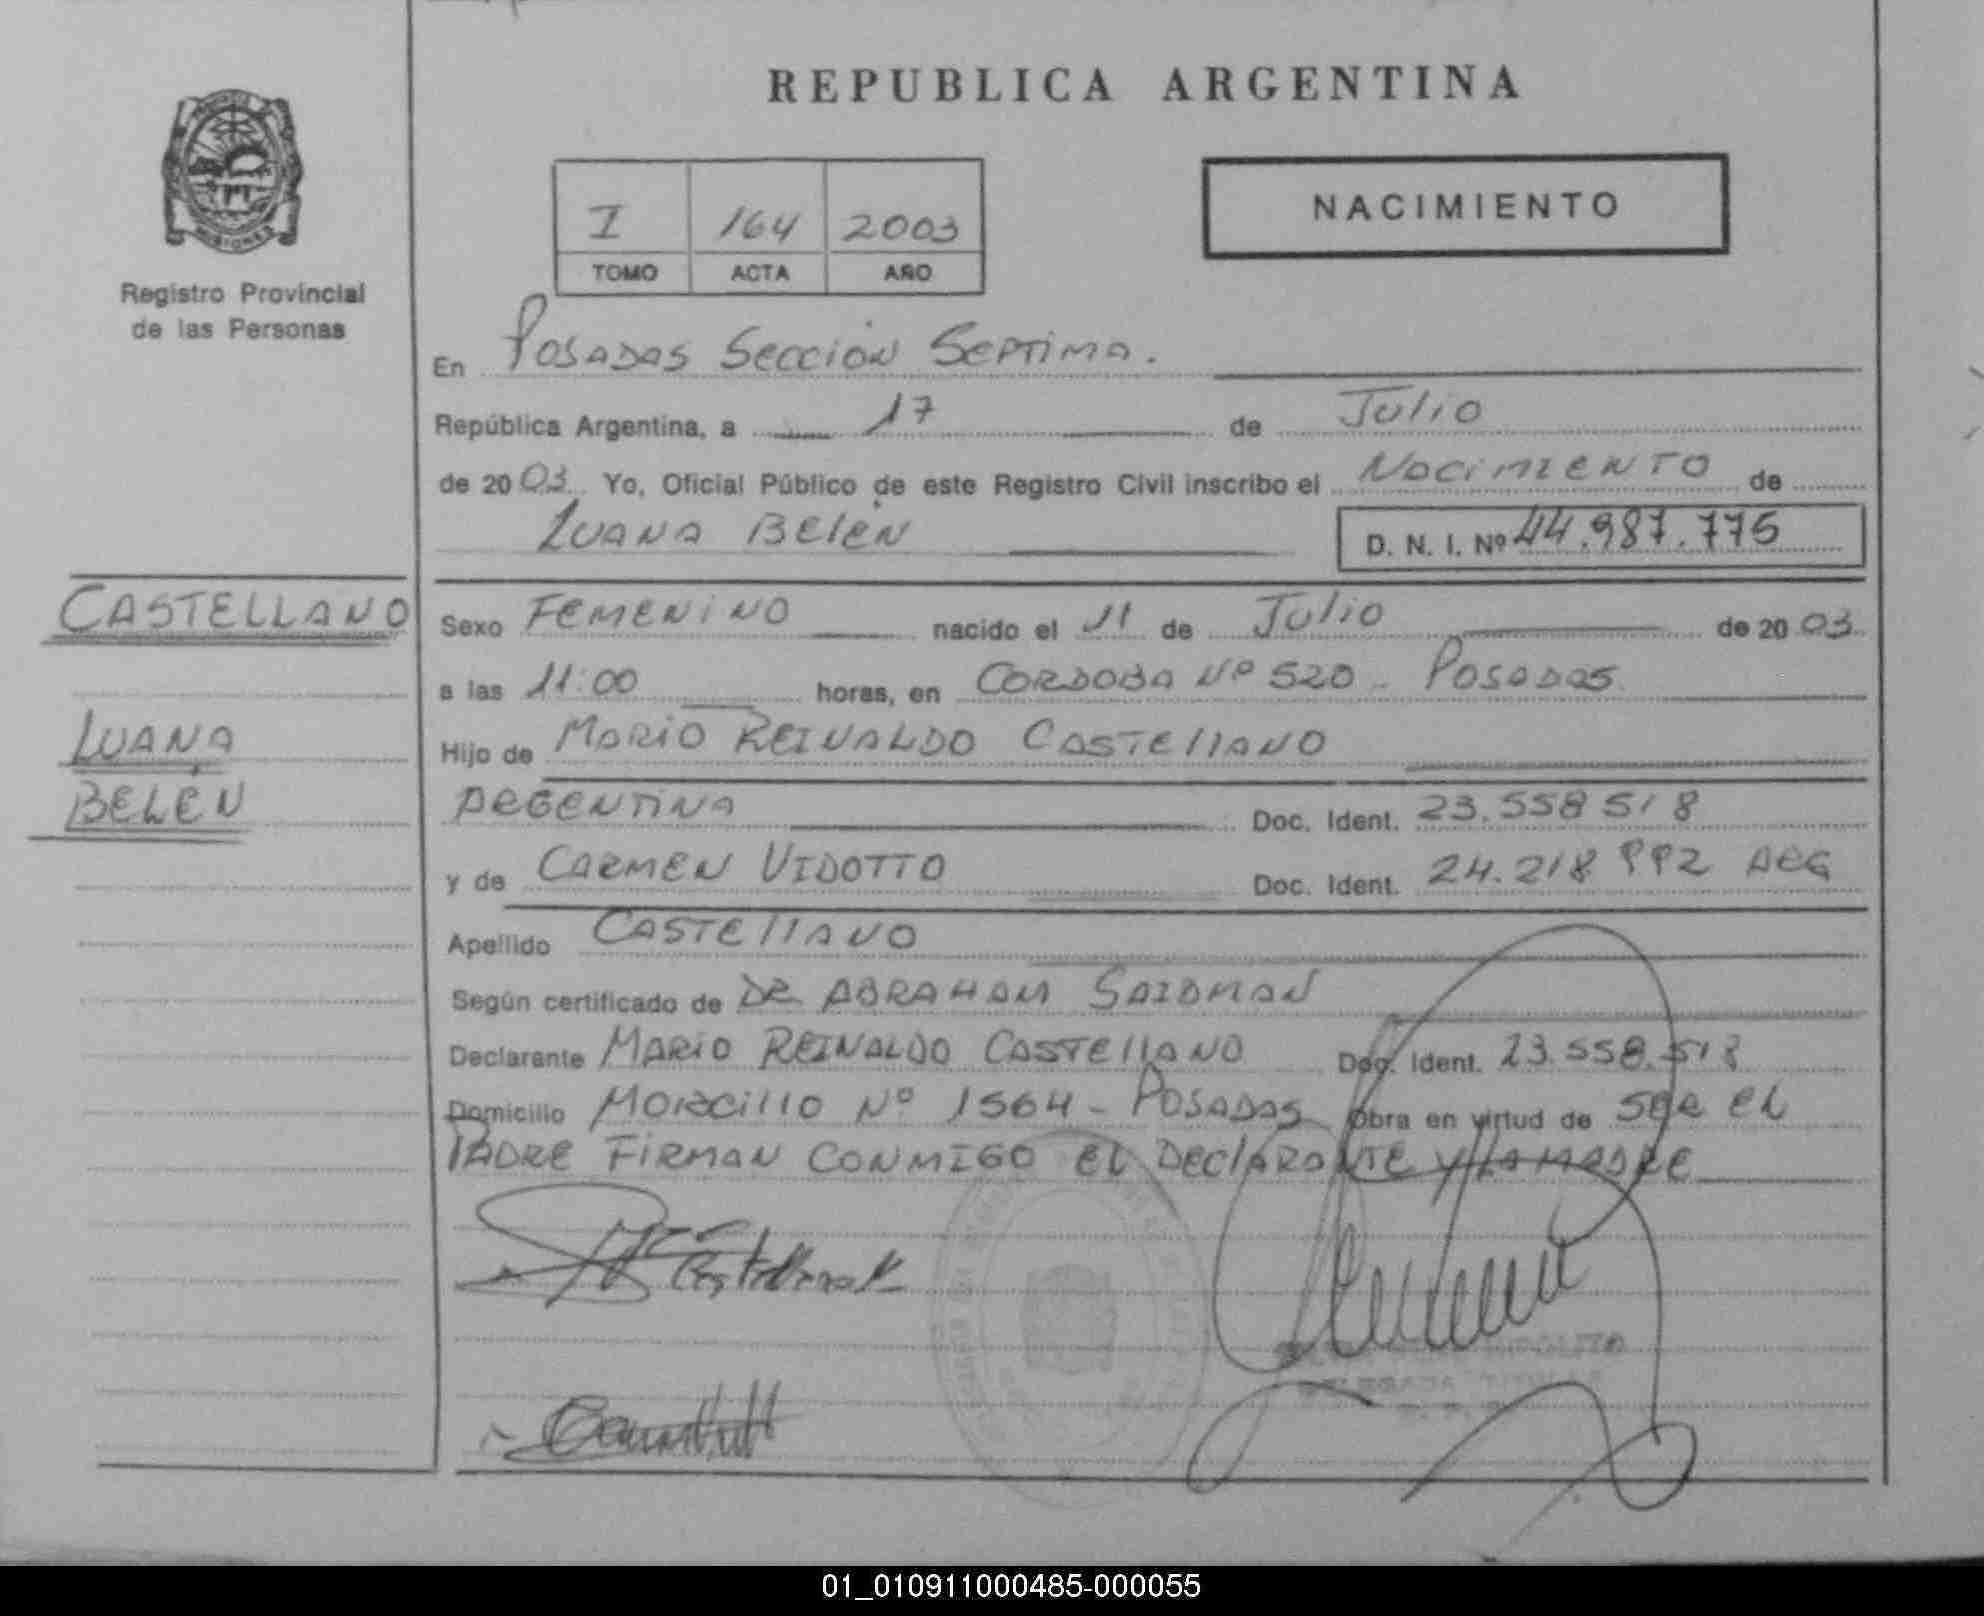 REPUBLICA ARGENTINA
MISIONES
Registro Provincial
de las Personas
I 164 2003
TOMO ACTA AÑO
NACIMIENTO
En Posadas Sección Septima.
República Argentina, a 17 de Julio
de 2003 Yo, Oficial Público de este Registro Civil inscribo el Nacimiento de
Luana Belén D. N. I. Nº 44.987.775
CASTELLANO
LUANA
BELÉN
Sexo FEMENINO nacido el 11 de Julio de 2003
a las 11:00 horas, en CORDOBA Nº 520 - Posadas
Hijo de MARIO REINALDO CASTELLANO
ARGENTINA Doc. Ident. 23.558 518
y de CARMEN VIDOTTO Doc. Ident. 24.218 992 ARG
Apellido CASTELLANO
Según certificado de DR ABRAHAM SAIDMAN
Declarante MARIO REINALDO CASTELLANO Doc. Ident. 23.558.518
Domicilio Morcillo Nº 1564 - POSADAS Obra en virtud de SER EL
PADRE FIRMAN CONMIGO EL DECLARANTE Y LA MADRE
01_010911000485-000055